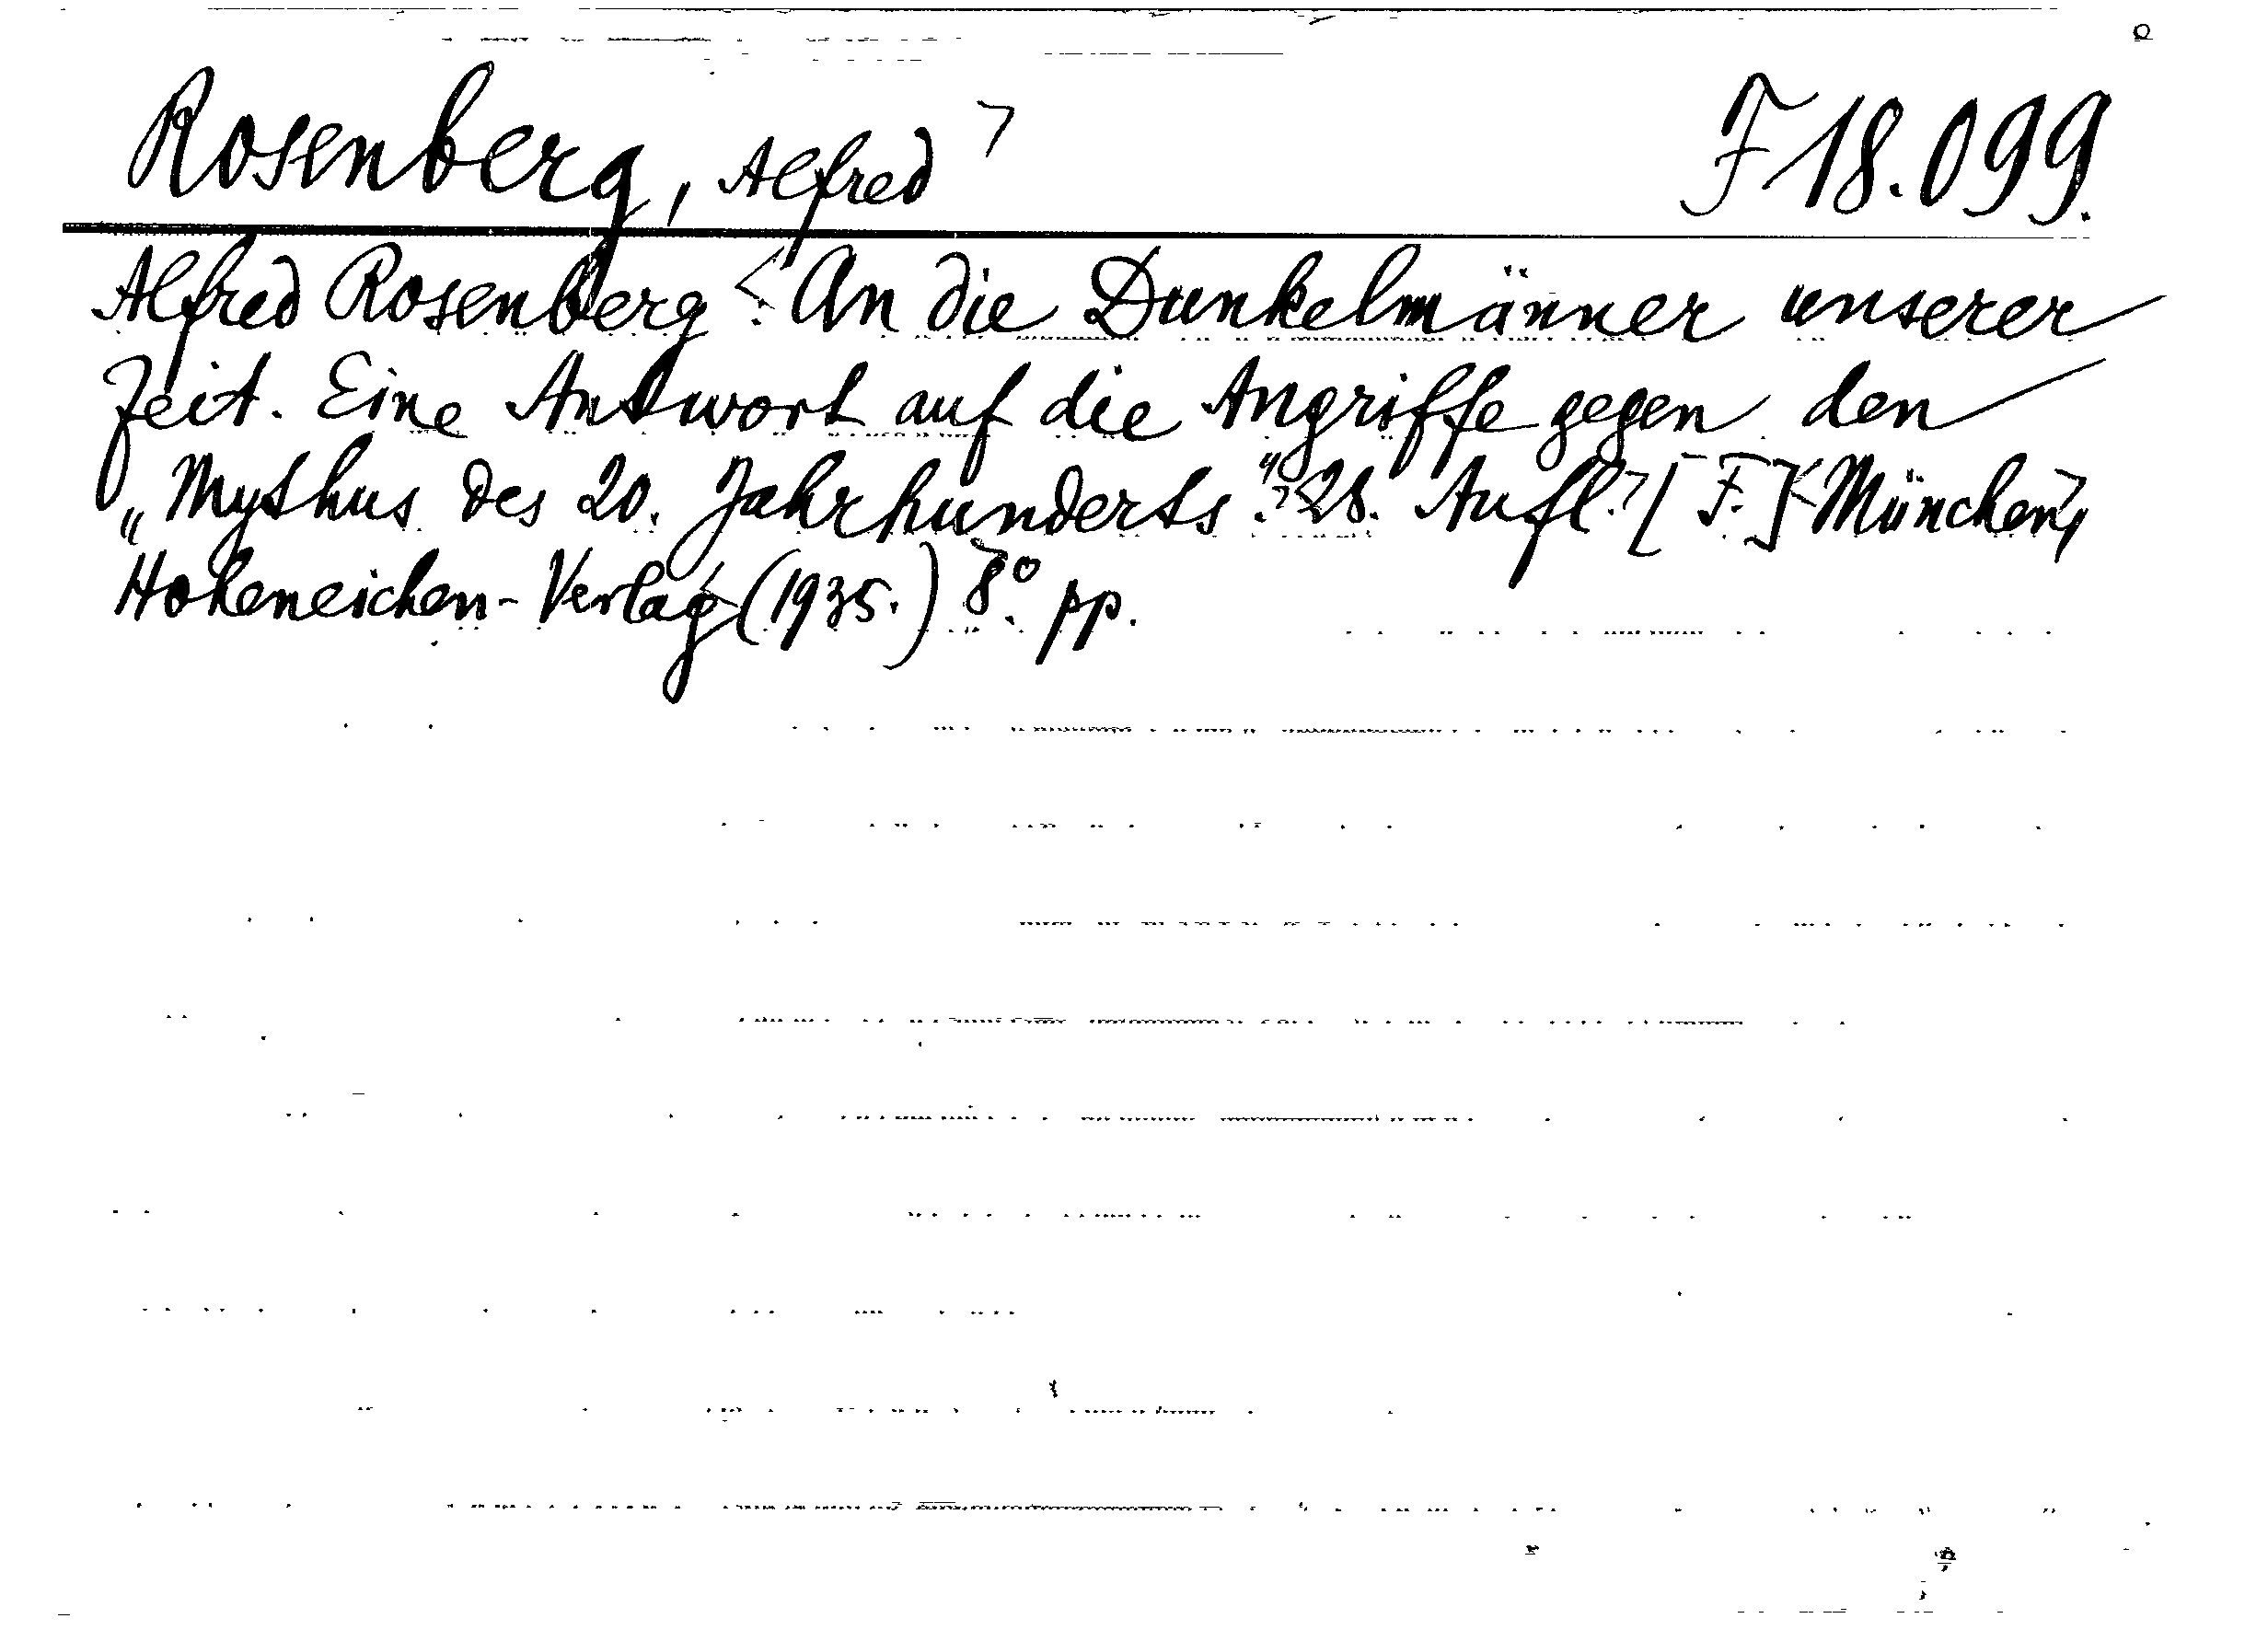 Rosenberg, Alfred F 18.099.
Alfred Rosenberg: An die Dunkelmänner unserer
Zeit. Eine Antwort auf die Angriffe gegen den
„Mythus des 20. Jahrhunderts." 28. Aufl. [F.] München,
Hoheneichen-Verlag (1935.) 8°. pp.